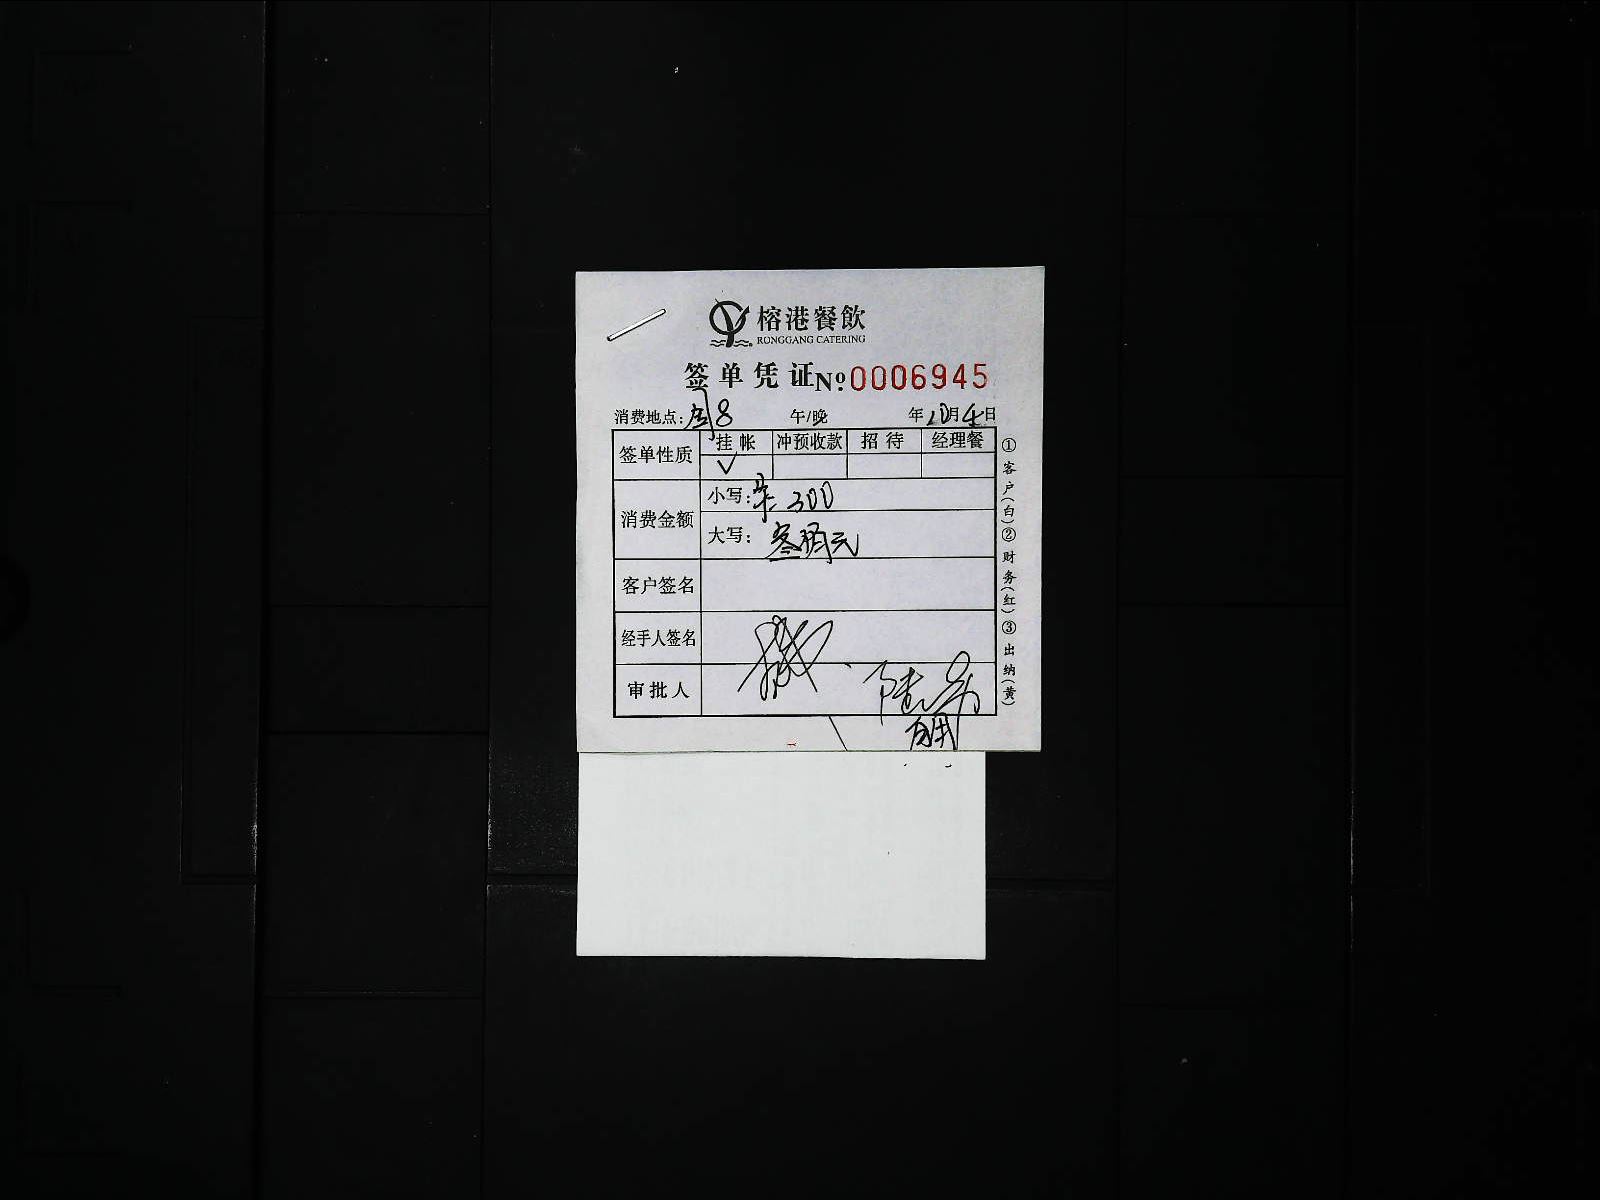 榕港餐飲
RONGGANG CATERING
签单凭证 Nº 0006945
消费地点: 8 午/晚 年10月4日
签单性质 挂帐 冲预收款 招待 经理餐
✓
消费金额 小写: 300
大写: 叁佰元
客户签名
经手人签名
审批人
①客户(白)②财务(红)③出纳(黄)